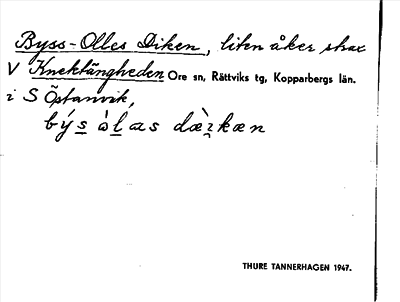 Byss-Olles Diken, liten åker strax
V Knektängheden Ore sn, Rättviks tg, Kopparbergs län.
i S Östanvik,
THURE TANNERHAGEN 1947.